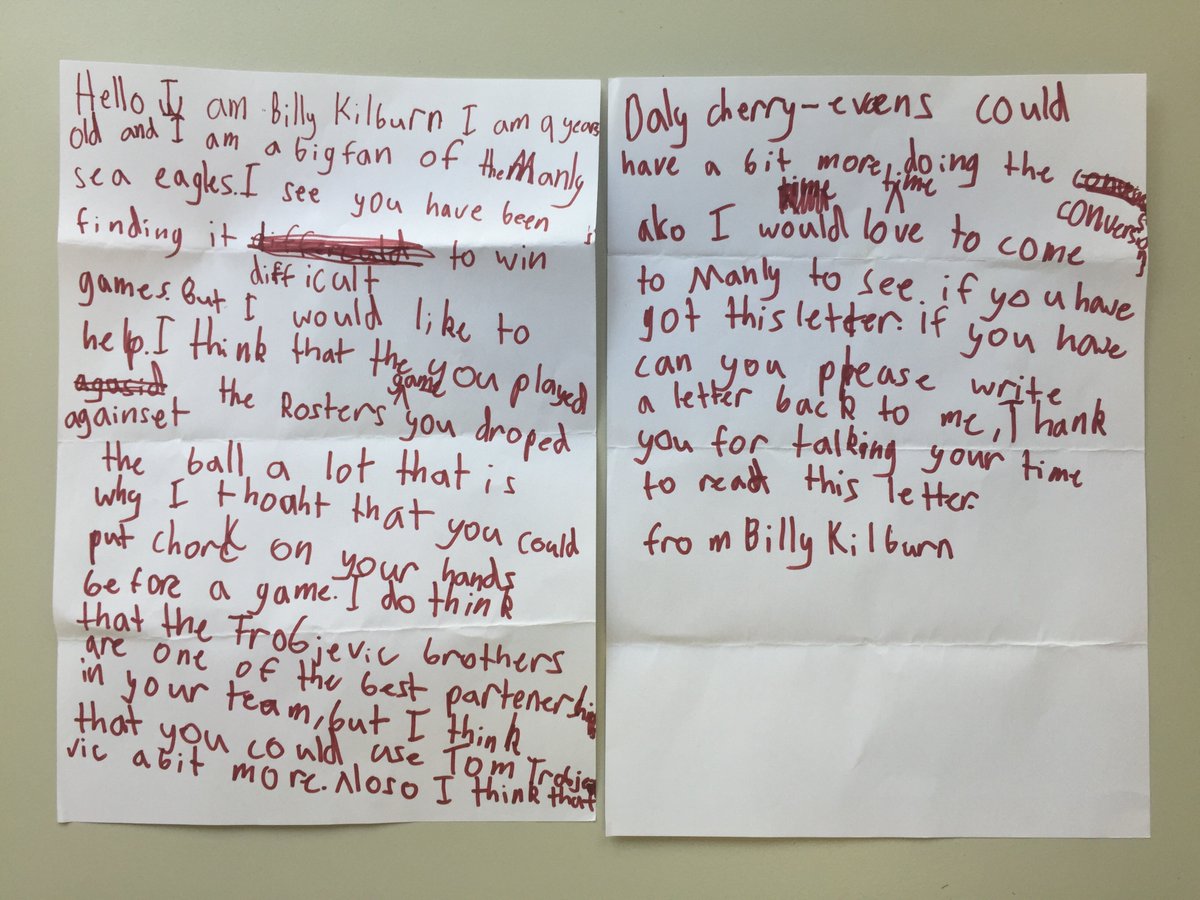 Hello I am Billy Kilburn I am 9 years
old and I am a big fan of the Manly
sea eagles. I see you have been
finding it to win
difficult
games. But I would like to
help. I think that the game you played
againset the Rosters you droped
the ball a lot that is
why I thoaht that you could
put chorck on your hands
before a game. I do think
that the Trobjevic brothers
are one of the best partenership
in your team, but I think
that you could use Tom Trobje
vic a bit more. Aloso I think that
Daly cherry-evens could
have a bit more time doing the
conversing
also I would love to come
to Manly to see if you have
got this letter. if you have
can you please write
a letter back to me, Thank
you for talking your time
to read this letter.
from Billy Kilburn